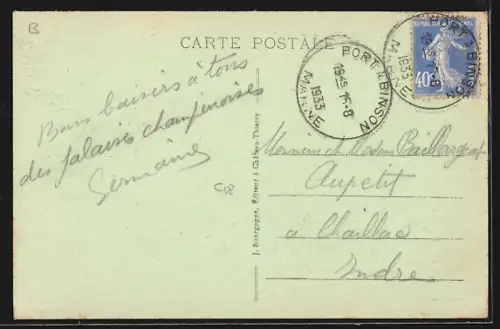 B
CARTE POSTALE
Bons baisers à tous
des falaises champenoises
Germaine
C98
J. Bourgogne, Éditeur à Château-Thierry
PORT À BINSON
19 45 15-8
1933
MARNE
REPUBLIQUE FRANÇAISE
40c
PORT À BINSON
1933
MARNE
Monsieur et Madame Baillargeat
Aupetit
à Chaillac
Indre